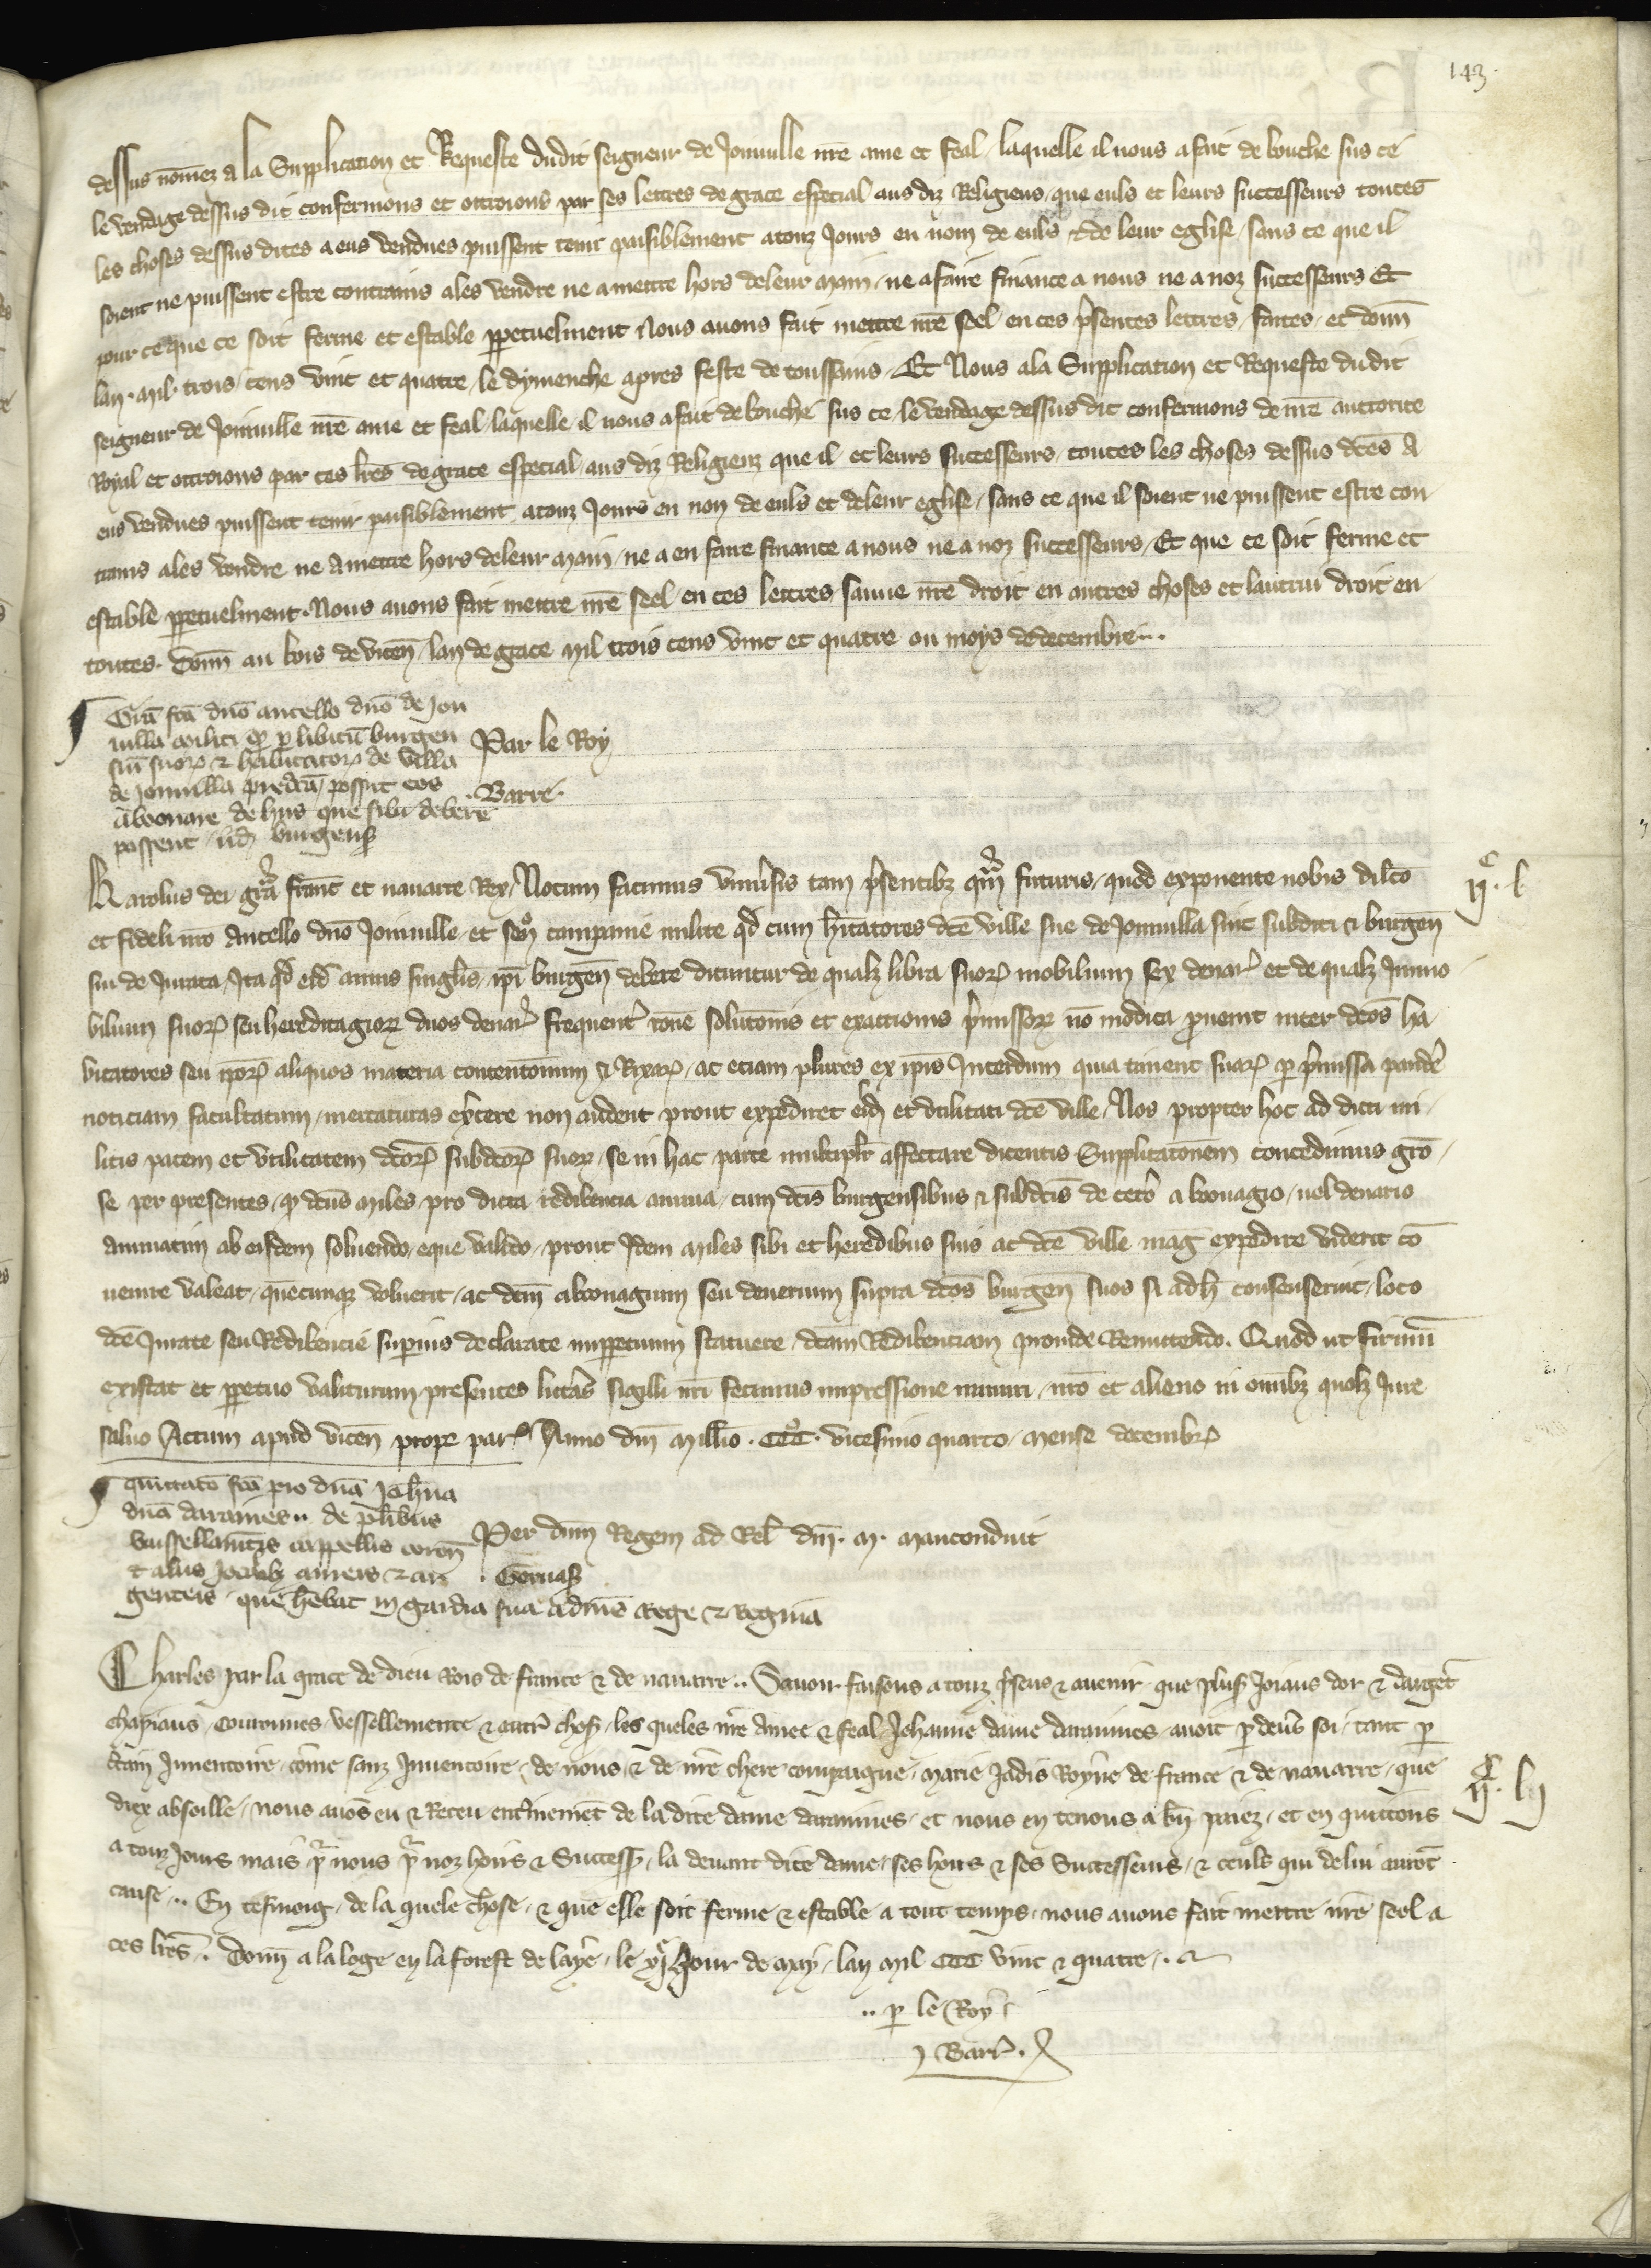 143.
dessus nomez a la Supplication et Requeste dudit seigneur de Joinuille nr̄e ame et feal laquelle il nous a fait de bouche sus ce
le vendage dessus dit confermons et ottroions par ses lettres de grace especial aus diz Religieus que euls et leurs successeurs toutes
les choses dessus dites a eus vendues puissent tenir paisiblement a touz Jours en nom de euls et de leur eglise sans ce que il
soient ne puissent estre contrains a les vendre ne a mettre hors de leur main ne a faire finance a nous ne a noz successeurs Et
pour ce que ce soit ferme et estable ꝑpetuelment Nous auons fait mettre nr̄e seel en ces p̄sentes lettres faites et donn̄
lan mil trois cens vint et quatre le dymenche apres feste de toussains Et Nous a la Supplication et Requeste dudit
seigneur de Joinuille nr̄e ame et feal laquelle il nous a fait de bouche sus ce le vendage dessus dit confermons de nr̄e auttorite
Royal et ottroions par ces lr̄es de grace especial aus diz Religieuz que il et leurs successeurs toutes les choses dessus dc̄es a
eus vendues puissent tenir paisiblement a touz Jours en non de euls et de leur eglise sans ce que il soient ne puissent estre con
trains a les vendre ne a mettre hors de leur main ne a en faire finance a nous ne a noz successeurs Et que ce soit ferme et
estable ꝑpetuelment Nous auons fait mettre nr̄e seel en ces lettres sauue nr̄e droit en autres choses et lautrui droit en
toutes. Donn̄ au bois de vicen̄ lan de grace mil trois cens vint et quatre ou moys de decembre
Grā fc̄a dn̄o ancello dn̄o de Jon
uilla militi qꝫ ꝑ libitū burgen
siū suoꝝ et habitatoꝝ de villa
de Jonuilla predc̄a possit eos
abonare de hiis que sibi debere
possent iid̄ burgenses
Par le Roy
Barre.
Karolus dei gr̄a franc̄ et nauarre Rex Notum facimus vniu̾sis tam p̄sentibꝫ qm̄ futuris quod exponente nobis dilc̄o
et fideli nr̄o Ancello dn̄o Joinuille et sen̄ campanie milite qd̄ cum hītatores dc̄e ville sue de Jonuilla sint subditi et burgen̄
sui de Jurata Ita qd̄ eid̄ annis singl̄is ip̄i burgen̄ debere dicuntur de qualꝫ libra suoꝝ mobilium sex denar̄ et de qualꝫ Immo
bilium suoꝝ seu hereditagioꝝ duos denar̄ frequent̄ rōne solutōnis et exactionis p̄missoꝝ nō modica ꝓuenit inter dc̄os ha
bitatores seu ip̄oꝝ aliquos materia contentōnum et Rixaꝝ ac etiam plures ex ip̄is Interdum quia timent suaꝝ ꝑ p̄missa pandi
noticiam facultatum mercaturas ex̄cere non audent prout expediret eisd̄ et vtilitati dc̄e ville Nos propter hoc ad dicti mi
litis pacem et vtilitatem dc̄oꝝ subdc̄oꝝ suoꝝ se in hac parte multiplr̄ affectare dicentis Supplicatōnem concedimus grō
se per presentes qꝫ dc̄us miles pro dicta redibencia annua cum dc̄is burgensibus et subdc̄is de cet̄o abonagio uel denario
annuatim ab eisdem soluendo eque valido prout Idem miles sibi et heredibus suis ac dc̄e ville mag̾ expedire viderit cō
uenire valeat quecunqꝫ voluerit ac dc̄m abonagium seu deuerium supra dc̄os burgen̄ suos si adh̄ consenserint loco
dc̄e Jurate seu Redibencie superius declarate imꝑpetuum statuere dc̄am Redibenciam ꝓinde Remittendo. Quod ut firmū
existat et ꝑpetuo valiturum presentes litt̾as sigilli nr̄i fecimus impressione muniri nr̄o et alieno in om̄ibꝫ quolꝫ Jure
saluo Actum apud vicen̄ prope par̄ Anno dn̄i Mill̄io CCC̊ vicesimo quarto mense decembr̄
ijᶜ. l
quittatō fc̄a pro dn̄a Joh̄na
dn̄a daraines de pl̄ibus
vaissellamētis cappellis coron̄
et aliis Jocalibꝫ aureis et ar
genteis que hēbat in gardia sua a dn̄is Rege et Regina
Per dn̄m Regem ad Rel̄ dn̄i M. mauconduit
Geruas̄
Charles par la grace de dieu Rois de france et de nauarre Sauoir faisons a touz p̄sens et auenir que plus̄ Joiaus dor et dargēt
chapiaus couronnes vessellemente et autr̄ chos̄ les queles nr̄e amee et feal Jehanne dame darainnes auoit ꝑ deuers soi tant ꝑ
c̄tain Inuentoire cōme sanz Inuentoire de nous et de nr̄e chere compaigne marie Jadis Royne de france et de nauarre que
diex absoille nous auōs eu et Receu ent̄inemēt de la dite dame darainnes et nous en tenons a bn̄ paiez et en quittons
a touz Jours mais pr̄ nous pr̄ noz hoirs et Success̄ la deuant dite dame ses hoirs et ses Successeurs et ceuls qui de lui aurōt
cause En tesmoig de la quele chose et que elle soit ferme et estable a tout temps nous auons fait mettre nr̄e seel a
ces lr̄es Donn̄ a la loge en la forest de laye le xjᵉ Jour de may lan mil CCC vint et quatre
ijᶜ. lj
ꝑ le Roy
J Barr̄.